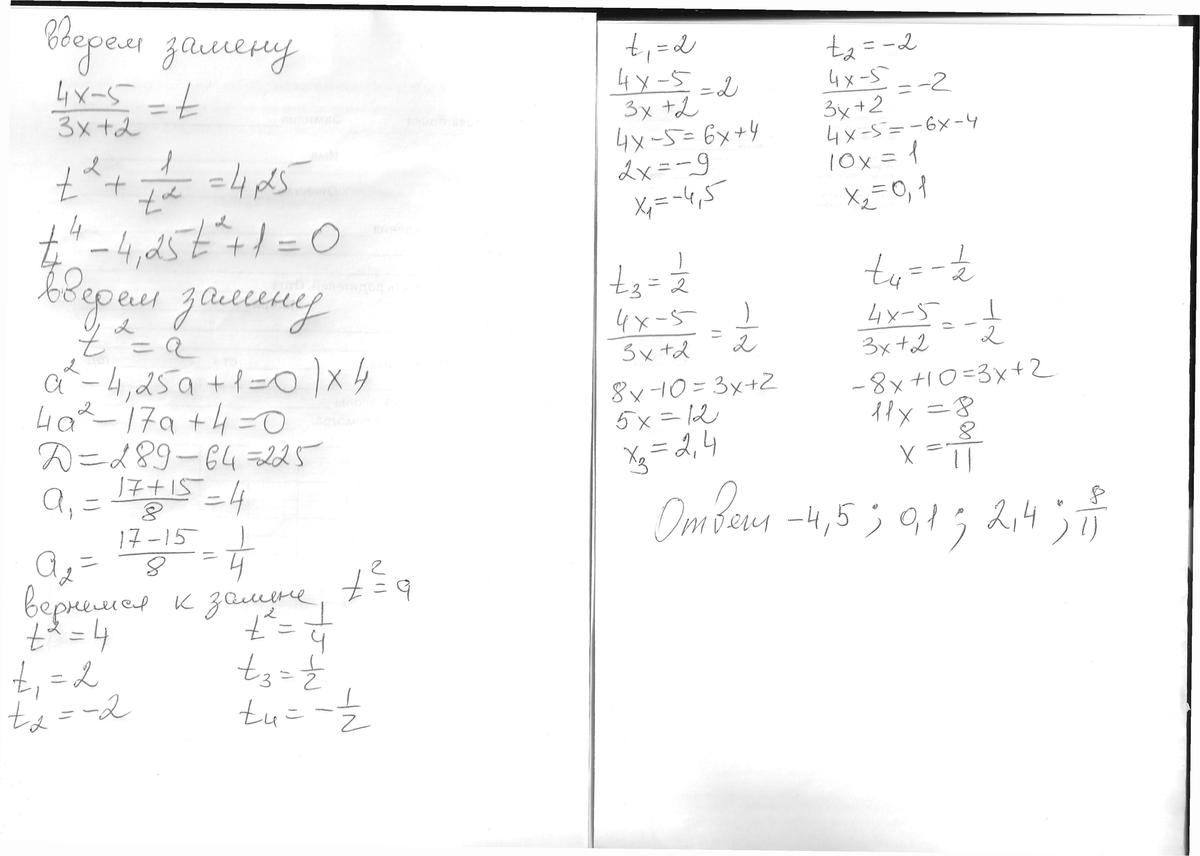 введем замену
(4x-5)/(3x+2) = t
t² + 1/t² = 4,25
t⁴ - 4,25t² + 1 = 0
введем замену
t² = a
a² - 4,25a + 1 = 0 | x 4
4a² - 17a + 4 = 0
D = 289 - 64 = 225
a₁ = (17+15)/8 = 4
a₂ = (17-15)/8 = 1/4
вернемся к замене, t² = a
t² = 4
t₁ = 2
t₂ = -2
t² = 1/4
t₃ = 1/2
t₄ = -1/2
t₁ = 2
(4x-5)/(3x+2) = 2
4x-5 = 6x+4
2x = -9
x₁ = -4,5
t₂ = -2
(4x-5)/(3x+2) = -2
4x-5 = -6x-4
10x = 1
x₂ = 0,1
t₃ = 1/2
(4x-5)/(3x+2) = 1/2
8x-10 = 3x+2
5x = 12
x₃ = 2,4
t₄ = -1/2
(4x-5)/(3x+2) = -1/2
-8x+10 = 3x+2
11x = 8
x = 8/11
Ответ -4,5 ; 0,1 ; 2,4 ; 8/11